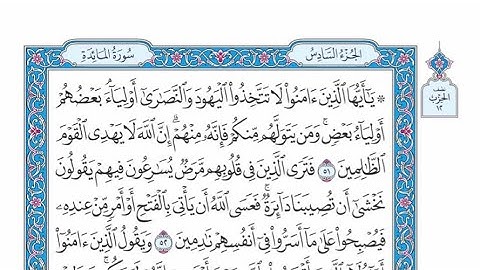 سُورَةُ المَائِدَةِ
الجُزْءُ السَّادِسُ
نصف
الحزب
١٢
* يَٰٓأَيُّهَا ٱلَّذِينَ ءَامَنُوا۟ لَا تَتَّخِذُوا۟ ٱلْيَهُودَ وَٱلنَّصَٰرَىٰٓ أَوْلِيَآءَ ۘ بَعْضُهُمْ
أَوْلِيَآءُ بَعْضٍ ۚ وَمَن يَتَوَلَّهُم مِّنكُمْ فَإِنَّهُۥ مِنْهُمْ ۗ إِنَّ ٱللَّهَ لَا يَهْدِى ٱلْقَوْمَ
ٱلظَّٰلِمِينَ ٥١ فَتَرَى ٱلَّذِينَ فِى قُلُوبِهِم مَّرَضٌ يُسَٰرِعُونَ فِيهِمْ يَقُولُونَ
نَخْشَىٰٓ أَن تُصِيبَنَا دَآئِرَةٌ ۚ فَعَسَى ٱللَّهُ أَن يَأْتِىَ بِٱلْفَتْحِ أَوْ أَمْرٍ مِّنْ عِندِهِۦ
فَيُصْبِحُوا۟ عَلَىٰ مَآ أَسَرُّوا۟ فِىٓ أَنفُسِهِمْ نَٰدِمِينَ ٥٢ وَيَقُولُ ٱلَّذِينَ ءَامَنُوٓا۟